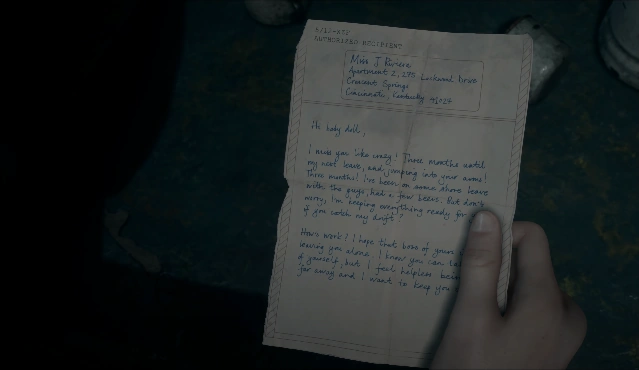 AUTHORISED RECIPIENT
Miss J Riviere
Apartment 2, 275 Lockwood Drive
Crescent Springs
Cincinnati, Kentucky 41017
Hi baby doll,
I miss you like crazy! Three months until
my next leave, and jumping into your arms!
Three months! I've been on some shore leave
with the guys, had a few beers. But don't
worry, I'm keeping everything ready for
if you catch my drift?
How's work? I hope that boss of yours
leaving you alone. I know you can
of yourself, but I feel helpless
far away and I want to keep you